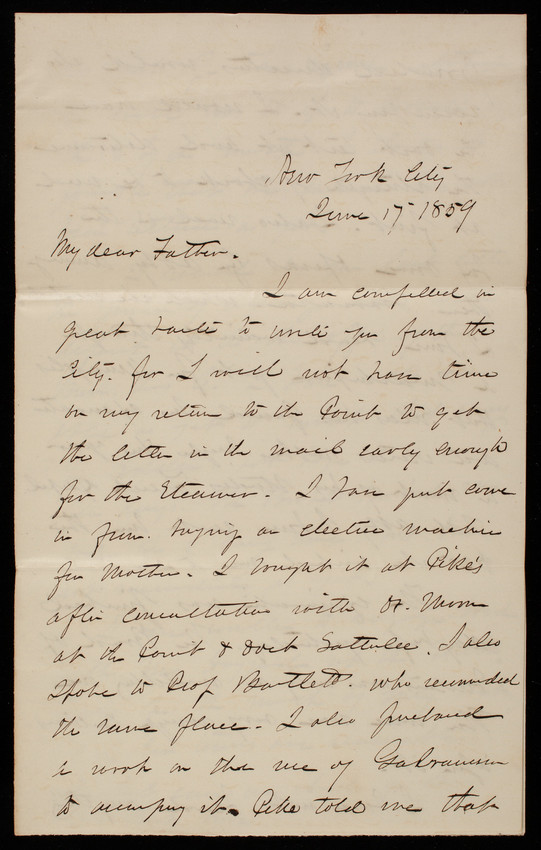 New York City
June 17 1859
My dear Father.
I am compelled in
great haste to write you from the
City. for I will not have time
on my return to the Point to get
the letter in the mail early enough
for the Steamer. I have just come
in from buying an electric machine
for Mother. I bought it at Pike's
after consultation with Dr. Moore
at the Point & Doct Satterlee. I also
Spoke to Prof Bartlett. who recommended
the same place. I also purchased
a work on the use of Galvanism
to accompany it. Pike told me that